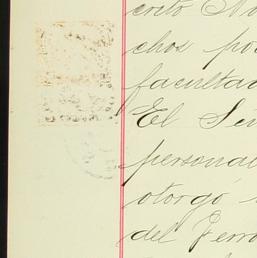 crito No
chos pos
facultad
El Señ
personal
otorgo
del Ferro